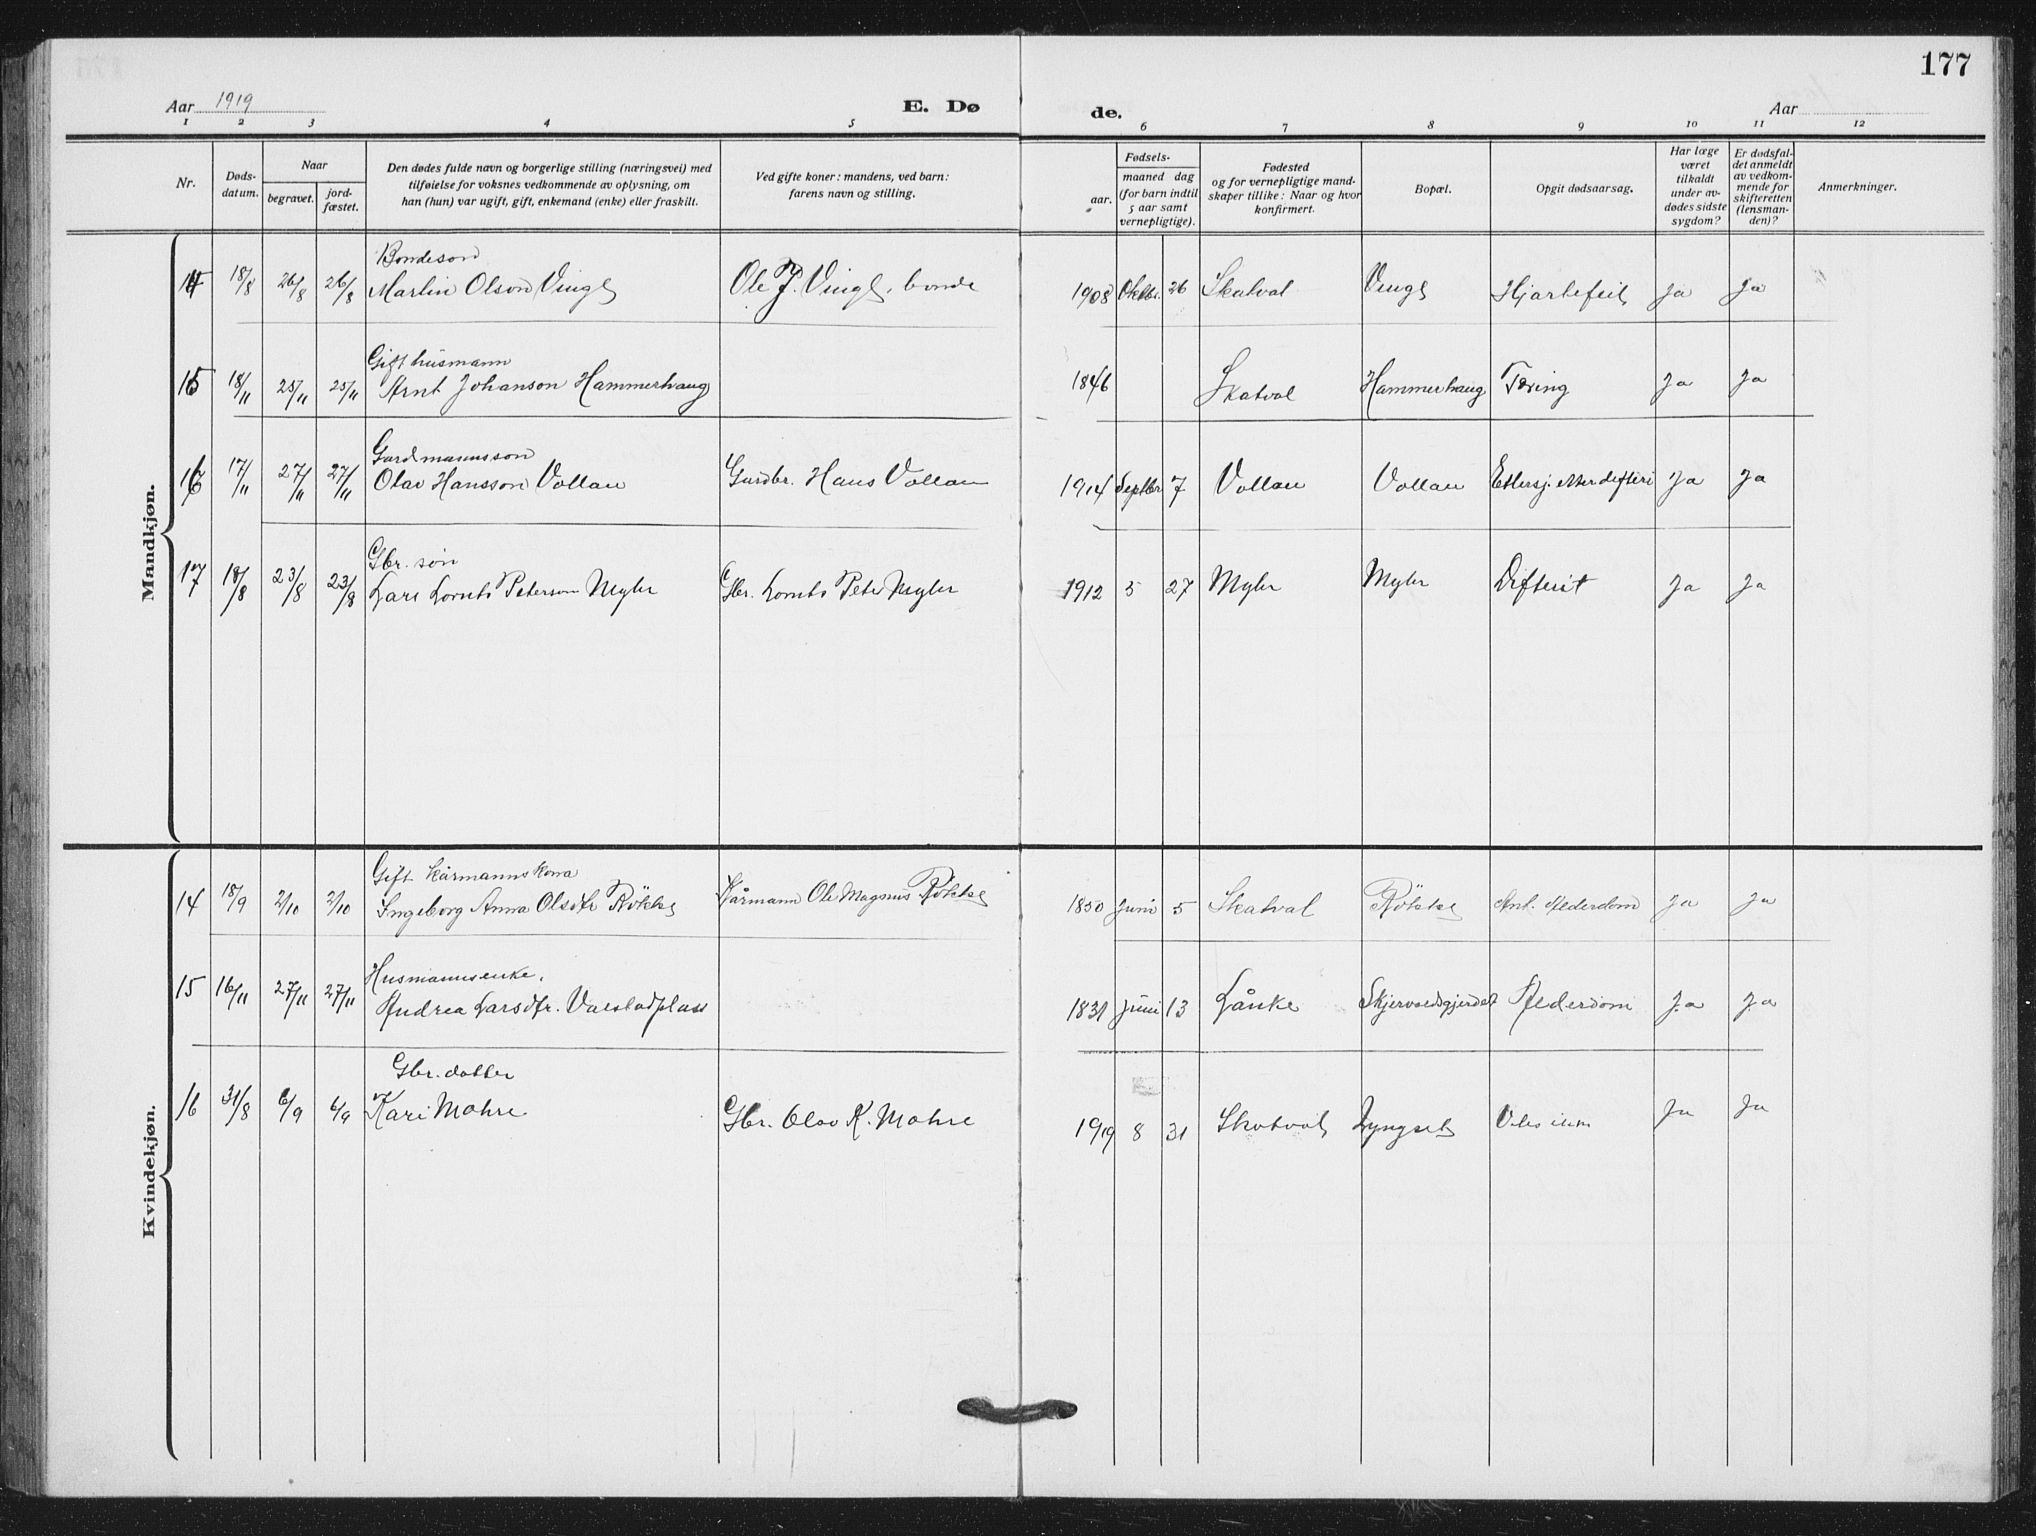 177
Aar 1919
E. Dø
de.
Aar
1 2 3 4 5 6 7 8 9 10 11 12
Nr.
Døds-
datum.
Naar
begravet.
jord-
fæstet.
Den dødes fulde navn og borgerlige stilling (næringsvei) med
tilføielse for voksnes vedkommende av oplysning, om
han (hun) var ugift, gift, enkemand (enke) eller fraskilt.
Ved gifte koner: mandens, ved barn:
farens navn og stilling.
Fødsels-
aar.
maaned dag
(for barn indtil
5 aar samt
vernepligtige).
Fødested
og for vernepligtige mand-
skaper tillike: Naar og hvor
konfirmert.
Bopæl.
Opgit dødsaarsag.
Har læge
været
tilkaldt
under av-
dødes sidste
sygdom?
Er dødsfal-
det anmeldt
av vedkom-
mende for
skifteretten
(lensman-
den)?
Anmerkninger.
Mandkjøn.
Bondeson
14 18/8 26/8 26/8 Martin Olson Vinge Ole J. Vinge, bonde 1908 Oktbr. 26 Skatval Vinge Hjartefeil Ja Ja
Gift husmann
15 18/11 25/11 25/11 Arnt Johanson Hammerhaug 1846 Skatval Hammerhaug Tæring Ja Ja
Gardmannsson
16 17/11 27/11 27/11 Olav Hansson Vollan Gardbr. Hans Vollan 1914 Septbr 7 Vollan Vollan Ettersj. etter difteri Ja Ja
Gbr. søn
17 18/8 23/8 23/8 Lars Lornts Peterson Myhr Gbr. Lornts Peter Myhr 1912 5 27 Myhr Myhr Difterit Ja Ja
Kvindekjøn.
Gift kårmannskona
14 18/9 2/10 2/10 Ingeborg Anna Olsdtr Røkke Kårmann Ole Magnus Røkke 1850 Juni 5 Skatval Røkke Ant. Alderdom Ja Ja
Husmannsenke.
15 16/11 27/11 27/11 Andrea Larsdtr. Vaestadplass 1831 Juni 13 Lånke Skjervoldsgjerdet Alderdom Ja Ja
Gbr. datter
16 31/8 6/9 6/9 Kari Mæhre Gbr. Olav K. Mæhre 1919 8 31 Skatval Lyngset Ja Ja